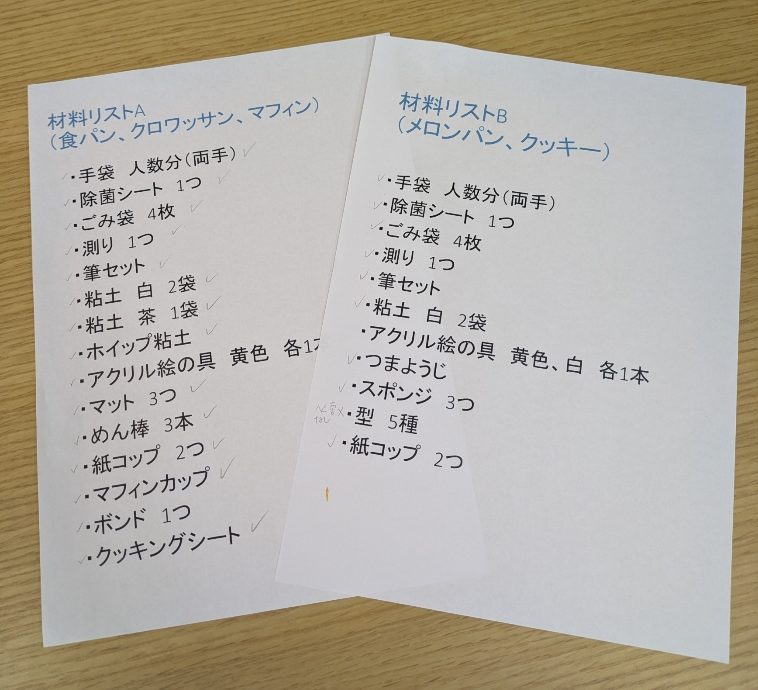 材料リストA
（食パン、クロワッサン、マフィン）
・手袋　人数分（両手）
・除菌シート　1つ
・ごみ袋　4枚
・測り　1つ
・筆セット
・粘土　白　2袋
・粘土　茶　1袋
・ホイップ粘土
・アクリル絵の具　黄色　各1本
・マット　3つ
・めん棒　3本
・紙コップ　2つ
・マフィンカップ
・ボンド　1つ
・クッキングシート
材料リストB
（メロンパン、クッキー）
・手袋　人数分（両手）
・除菌シート　1つ
・ごみ袋　4枚
・測り　1つ
・筆セット
・粘土　白　2袋
・アクリル絵の具　黄色、白　各1本
・つまようじ
・スポンジ　3つ
・型　5種
・紙コップ　2つ